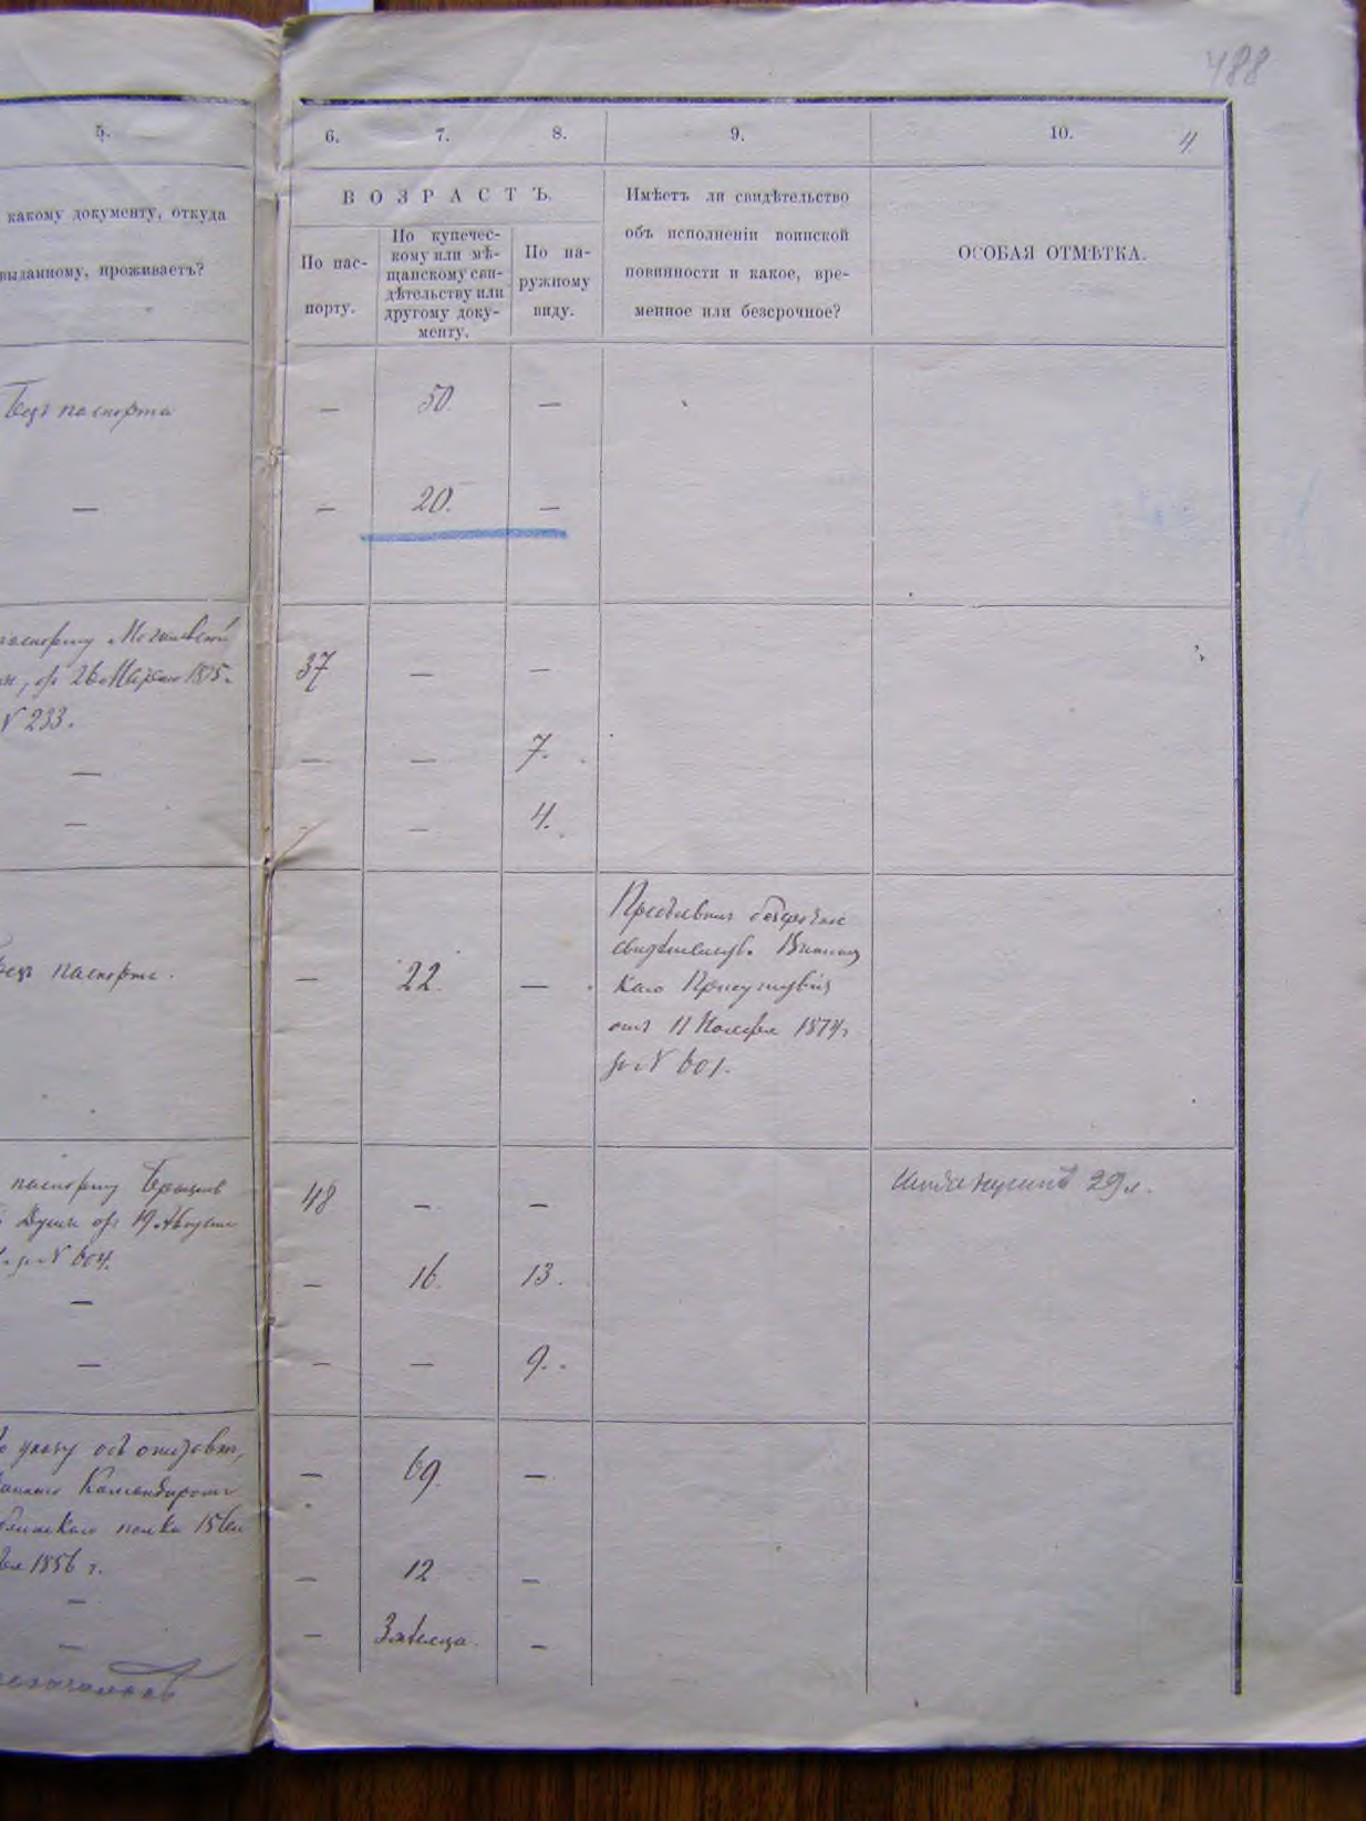 488
5. 6. 7. 8. 9. 10. 4.
какому документу, откуда
выданному, проживаетъ?
ВОЗРАСТЪ.
По пас-
порту.
По купечес-
кому или мѣ-
щанскому сви-
дѣтельству или
другому доку-
менту.
По на-
ружному
виду.
Имѣетъ ли свидѣтельство
объ исполненіи воинской
повинности и какое, вре-
менное или безсрочное?
ОСОБАЯ ОТМѢТКА.
Безъ паспорта — 50. —
— — 20. —
паспорту Могилевской
от 26 Марта 1875.
№ 233.
37 — —
— — — 7.
— — — 4.
Безъ паспорта. — 22. —
безсрочное
свидѣтельство
Присутствія
отъ 11 Ноября 1874 г.
за № 601.
паспорту
Думы от 19 Августа
за № 604.
48 — —
29 л.
— — 16. 13.
— — — 9.
указу объ отставкѣ,
Командиромъ
полка 15
1856 г.
— 69. —
— — 12 —
— — 3 мѣсяца. —